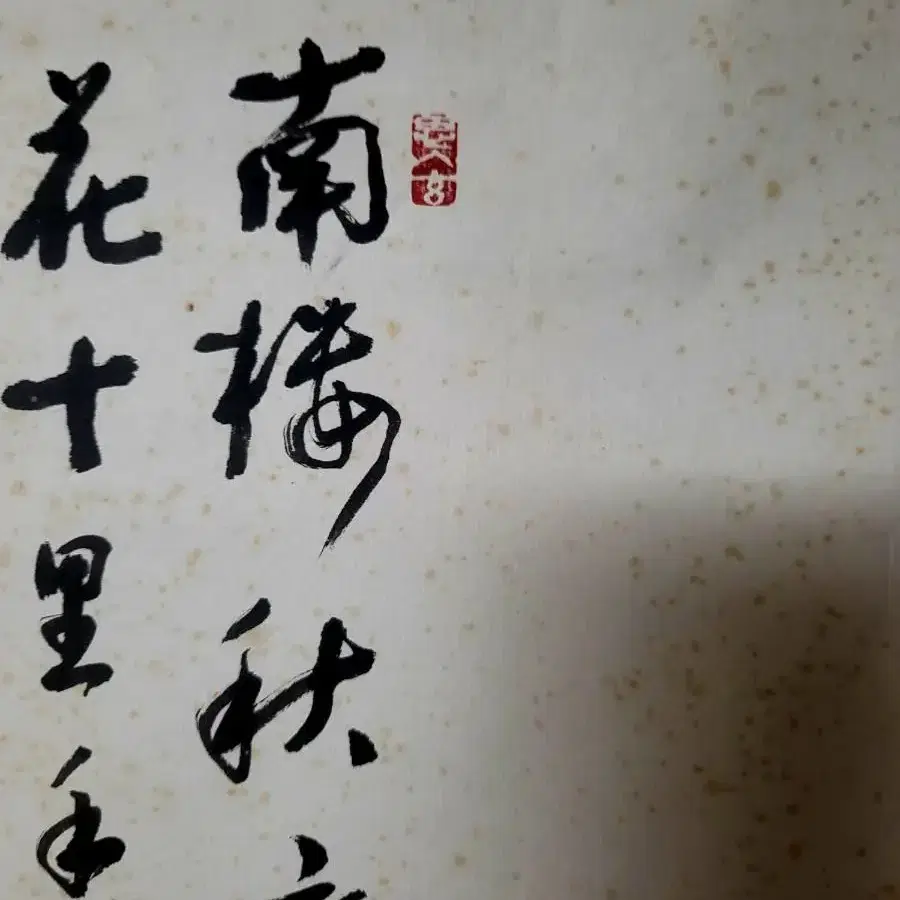 南樓秋
花十里